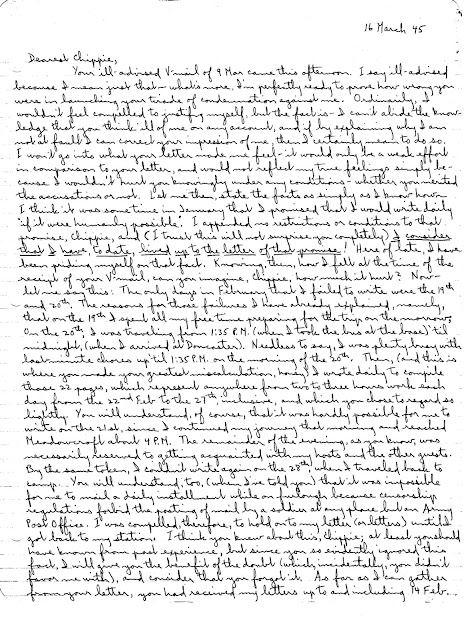 16 March 45
Dearest Chippie,
Your ill-advised V-mail of 9 Mar came this afternoon. I say ill-advised
because I mean just that - what's more, I'm perfectly ready to prove how wrong you
were in launching your tirade of condemnation against me. Ordinarily, I
wouldn't feel compelled to justify myself, but the fact is - I can't abide the know-
ledge that you think ill of me on any account, and if by explaining why I am
not at fault I can correct your impression of me, then I certainly mean to do so.
I won't go into what your letter made me feel - it would only be a weak effort
in comparison to your letter, and would not reflect my true feelings simply be-
cause I wouldn't hurt you knowingly under any conditions - whether you merited
the accusations or not. Let me then, state the facts as simply as I know how -
I think it was some time in January that I promised that I would write daily
"if it were humanly possible". I appended no restrictions or conditions to that
promise, Chippie, and (I trust this will not surprise you completely) I consider
that I have, to date, lived up to the letter of that promise! Here of late, I have
been priding myself on that fact. Knowing, then, how I felt at the time of the
receipt of your V-mail, can you imagine, Chippie, how much it hurt? Now -
let me say this: The only days in February that I failed to write were the 19th
and 20th. The reasons for those failures I have already explained, namely,
that on the 19th I spent all my free time preparing for the trip, on the morrow,
On the 20th, I was traveling from 1:35 P.M. (when I took the bus at the base) 'til
midnight, (when I arrived at Doncaster). Needless to say, I was plenty busy with
last minute chores up 'til 1:35 P.M. on the morning of the 20th. Then, (and this is
where you made your greatest miscalculation, honey) I wrote daily to compile
those 22 pages, which represent anywhere from two to three hours work each
day from the 22nd Feb to the 27th, inclusive, and which you chose to regard so
lightly. You will understand, of course, that it was hardly possible for me to
write on the 21st, since I continued my journey that morning and reached
Meadowcroft about 4 P.M. The remainder of the evening, as you know, was
necessarily reserved to getting acquainted with my hosts and the other guests.
By the same token, I couldn't write again on the 28th, when I traveled back to
camp. You will understand, too, (when I've told you) that it was impossible
for me to mail a daily installment while on furlough because censorship
regulations forbid the posting of mail by a soldier at any place but an Army
Post Office. I was compelled, therefore, to hold onto my letter (or letters) until I
got back to my station. I think you knew about this, Chippie, at least you should
have known from past experience, but since you so evidently ignored this
fact, I will give you the benefit of the doubt (which, incidentally, you didn't
favor me with), and consider that you forgot it. As far as I can gather
from your letter, you had received my letters up to and including 14 Feb.